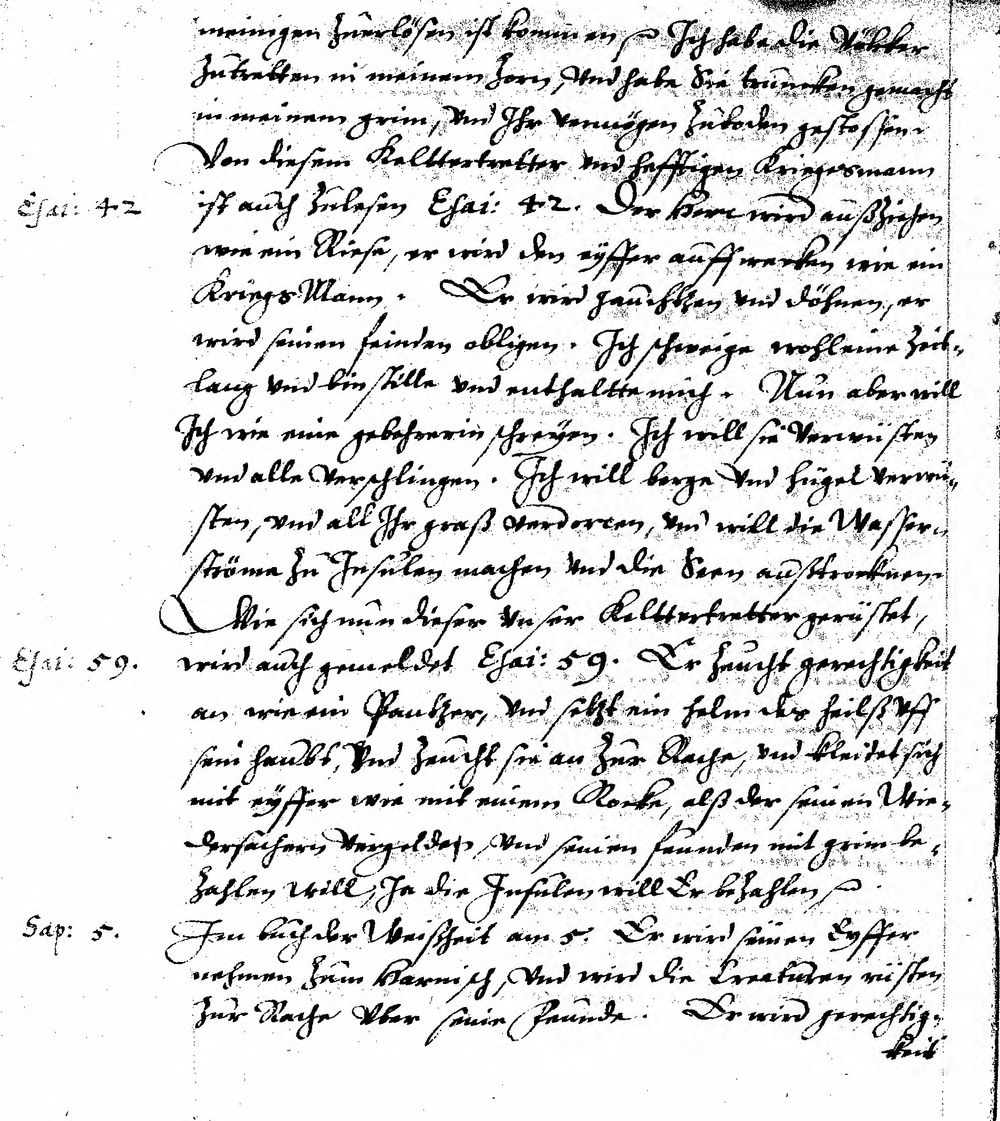 meinigen Zuerlösen ist kommen, Ich habe die Völcker
Zutretten in meinem Zorn, Vnd habe Sie truncken gemacht
in meinem grim, Vnd Ihr vermögen Zuboden gestossen.
Von diesem Kelttertretter vnd hefftigen Kriegesmann
Esai: 42
ist auch Zulesen Esai: 42. Der Herr wird außziehen
wie ein Riese, er wird den eyffer auffwecken wie ein
KriegsMann. Er wird jauchtzen vnd döhnen, er
wird seinen feinden obligen. Ich schweige wohl eine Zeit-
lang vnd bin stille vnd enthaltte mich. Nun aber will
Ich wie eine gebehrerin schreyen. Ich will sie Verwüsten
vnd alle Verschlingen. Ich will berge Vnd hügel verwü-
sten, vnd all Ihr graß verdorren, vnd will die Wasser-
ströme Zu Insulen machen Vnd die Seen außtrocknen.
Wie sich nun dieser Vnser Kelttertretter gerüstet,
Esai: 59.
wird auch gemeldet Esai: 59. Er Zeucht gerechtigkeit
an wie ein Pantzer, Vnd setzt ein helm des heilß vff
sein haubt, Vnd Zeucht sie an Zur Rache, vnd kleidet sich
mit eyffer wie mit einem Rocke, alß der seinen Wie-
dersachern vergelden, vnd seinen feinden mit grim be-
Zahlen will, Ja die Insulen will Er beZahlen
Sap: 5.
Im buch der Weißheit am 5. Er wird seinen Eyffer
nehmen Zum Harnisch, Vnd wird die Creaturen rüsten
Zur Rache Vber seine feinde. Er wird gerechtig-
keit